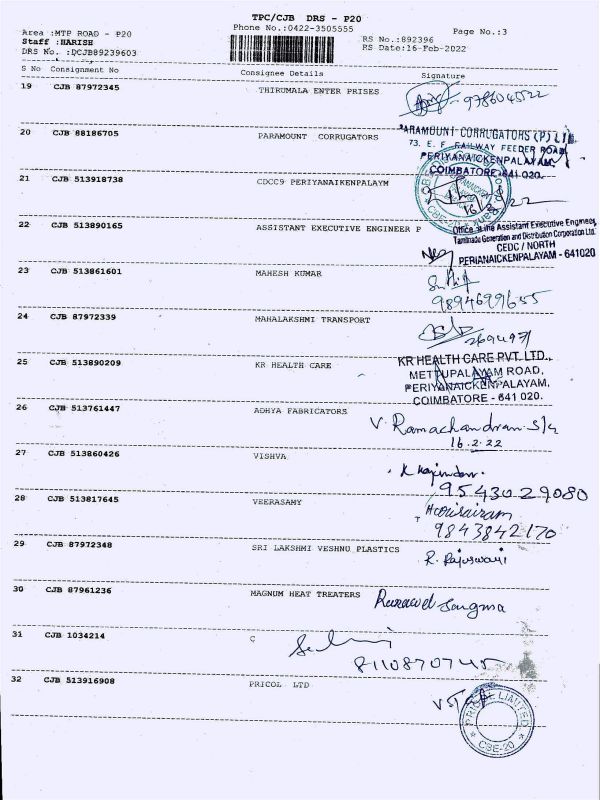 TPC/CJB DRS - P20
Area :MTP ROAD - P20
Phone No.:0422-3505555
Page No.:3
Staff :HARISH
RS No.:892396
DRS No. :DCJB89239603
RS Date:16-Feb-2022
S No Consignment No Consignee Details Signature
19 CJB 87972345 THIRUMALA ENTER PRISES
20 CJB 88186705 PARAMOUNT CORRUGATORS
PARAMOUNT CORRUGATORS (P) LTD.
73, E. F. RAILWAY FEEDER ROAD,
PERIYANAICKENPALAYAM,
COIMBATORE-641 020.
21 CJB 513918738 CDCC9 PERIYANAIKENPALAYM
16/2/22
22 CJB 513890165 ASSISTANT EXECUTIVE ENGINEER P
Office of the Assistant Executive Engineer,
Tamilnadu Generation and Distribution Corporation Ltd.
CEDC / NORTH
PERIANAICKENPALAYAM - 641020
23 CJB 513861601 MAHESH KUMAR
9894699655
24 CJB 87972339 MAHALAKSHMI TRANSPORT
25 CJB 513890209 KR HEALTH CARE
KR HEALTH CARE PVT. LTD.,
METTUPALAYAM ROAD,
PERIYANAICKENPALAYAM,
COIMBATORE - 641 020.
26 CJB 513761447 ADHYA FABRICATORS
V. Ramachandran
16.2.22
27 CJB 513860426 VISHVA
9543029080
28 CJB 513817645 VEERASAMY
T
9843842170
29 CJB 87972348 SRI LAKSHMI VESHNU PLASTICS
R. Rajeswari
30 CJB 87961236 MAGNUM HEAT TREATERS
31 CJB 1034214 C
8110870745
32 CJB 513916908 PRICOL LTD
PRICOL LIMITED
CBE-20